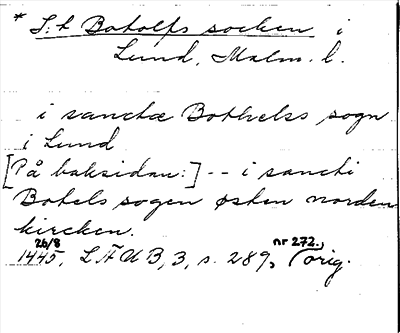 * S:t Botolfs socken i
Lund, Malm. l.
i sanctæ Bothelss sogn
i Lund
[På baksidan:] -- i sancti
Botels sogen østen norden
kircken.
26/8
1445, LÄUB, 3, s. 289, nr 272., orig.